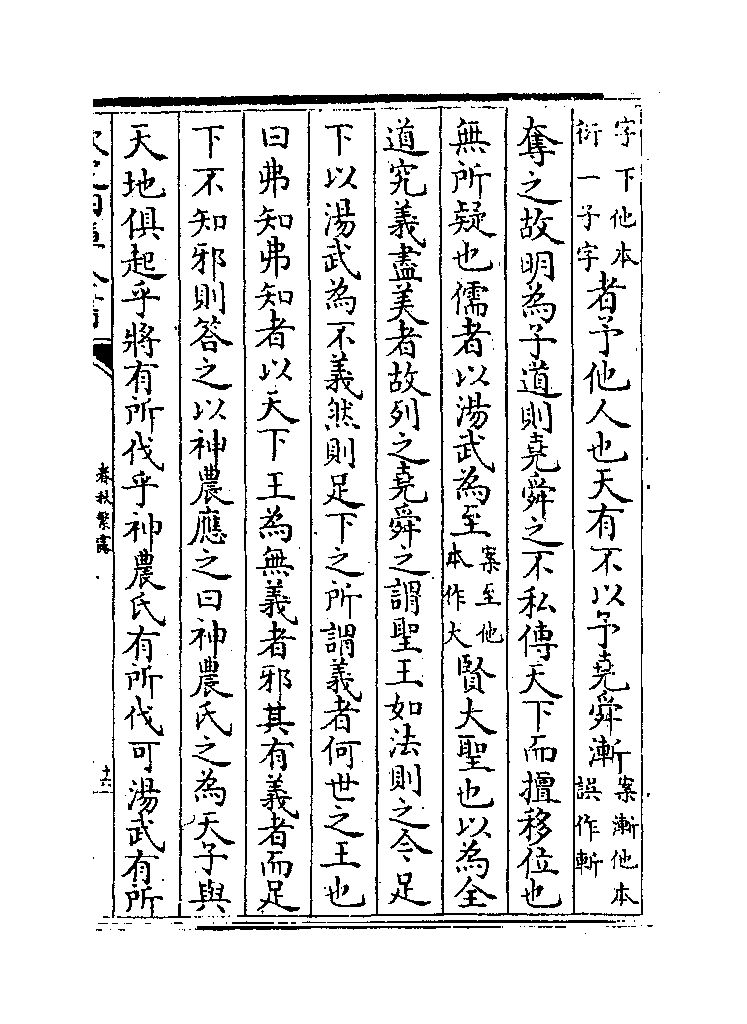 字下他本衍一子字者予他人也天有不以予堯舜漸案漸他本誤作斬
奪之故明為子道則堯舜之不私傳天下而擅移位也
無所疑也儒者以湯武為至案至他本作大賢大聖也以為全
道究義盡美者故列之堯舜之謂聖王如法則之今足
下以湯武為不義然則足下之所謂義者何世之王也
曰弗知弗知者以天下王為無義者邪其有義者而足
下不知邪則答之以神農應之曰神農氏之為天子與
天地俱起乎將有所伐乎神農氏有所伐可湯武有所
春秋繁露
十六